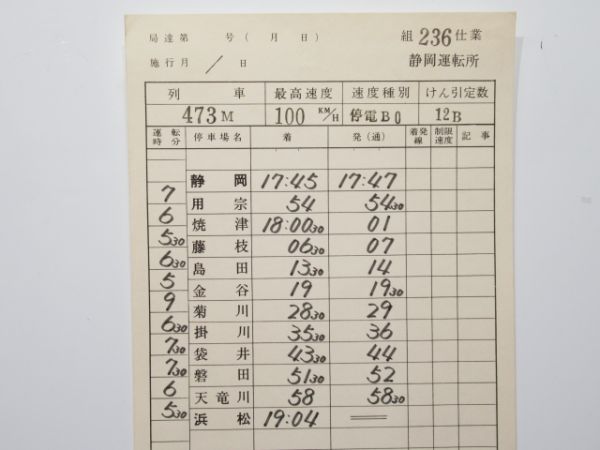 局達第 号 ( 月 日) 組 236 仕業
施行月 / 日 静岡運転所
列 車 最高速度 速度種別 けん引定数
473M 100 KM/H 停電B0 12B
運転時分 停車場名 着 発(通) 着発線 制限速度 記事
静岡 17:45 17:47
7 用宗 54 54 30
6 焼津 18:00 30 01
5 30 藤枝 06 30 07
6 30 島田 13 30 14
5 金谷 19 19 30
9 菊川 28 30 29
6 30 掛川 35 30 36
7 30 袋井 43 30 44
7 30 磐田 51 30 52
6 天竜川 58 58 30
5 30 浜松 19:04